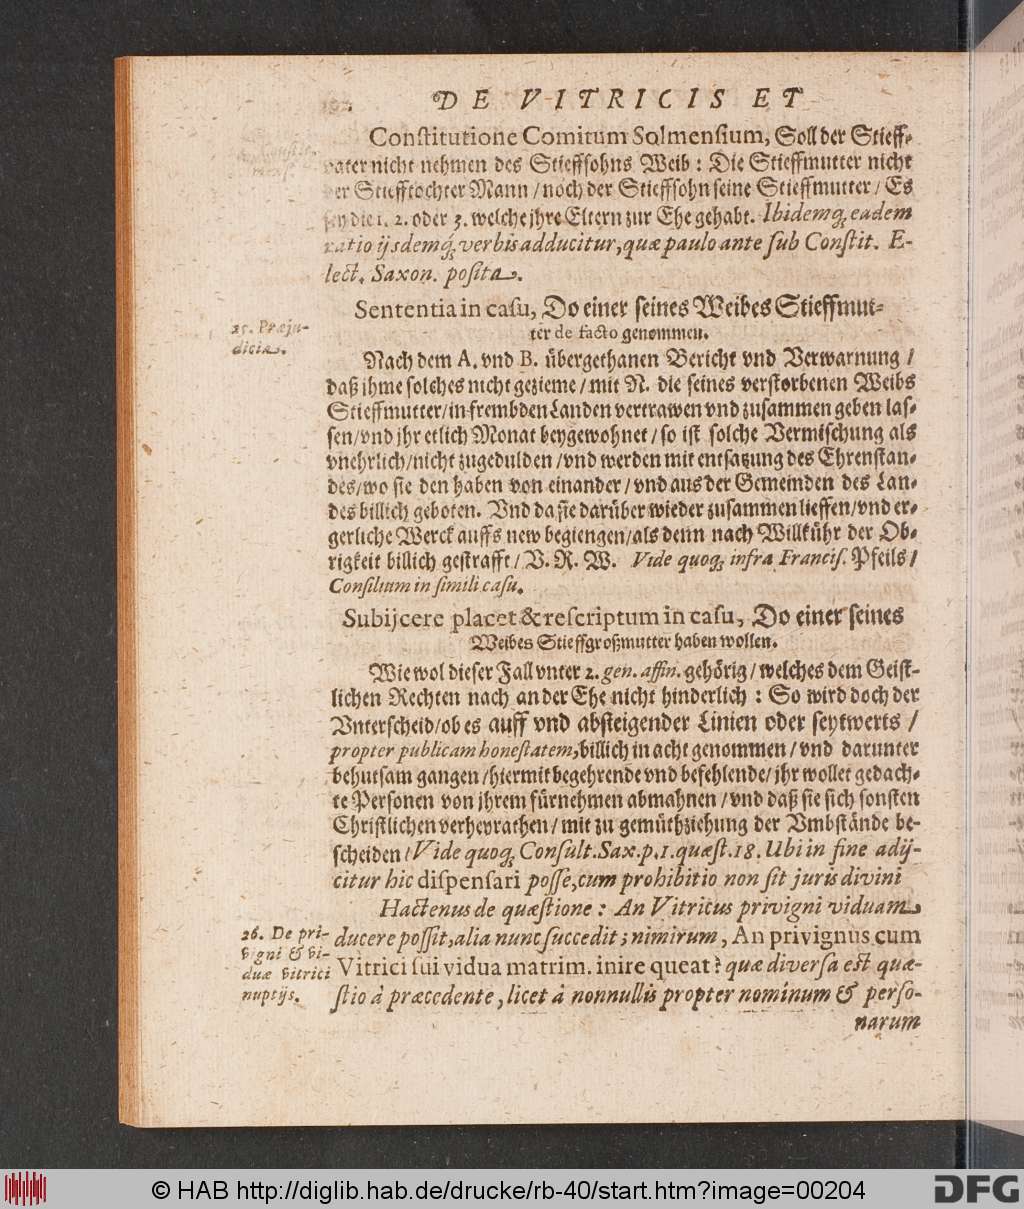 DE VITRICIS ET
Constitutione Comitum Solmensium, Soll der Stieff-
vater nicht nehmen des Stieffsohns Weib: Die Stieffmutter nicht
der Stiefftochter Mann / noch der Stieffsohn seine Stieffmutter / Es
sey die 1. 2. oder 3. welche jhre Eltern zur Ehe gehabt. Ibidemq; eadem
ratio ijsdemq́; verbis adducitur, quæ paulo ante sub Constit. E-
lect. Saxon. posita.
Sententia in casu, Do einer seines Weibes Stieffmut-
ter de facto genommen.
25. Præju-
diciæ.
Nach dem A. vnd B. übergethanen Bericht vnd Verwarnung /
daß jhme solches nicht gezieme / mit N. die seines verstorbenen Weibs
Stieffmutter / in frembden Landen vertrawen vnd zusammen geben las-
sen / vnd jhr etlich Monat beygewohnet / so ist solche Vermischung als
vnehrlich / nicht zugedulden / vnd werden mit entsatzung des Ehrenstan-
des / wo sie den haben von einander / vnd aus der Gemeinden des Lan-
des billich geboten. Vnd da sie darüber wieder zusammen lieffen / vnd er-
gerliche Werck auffs new begiengen / als denn nach Willkühr der Ob-
rigkeit billich gestrafft / V. R. W. Vide quoq; infra Francis. Pfeils /
Consilium in simili casu.
Subijcere placet & rescriptum in casu, Do einer seines
Weibes Stieffgroßmutter haben wollen.
Wie wol dieser Fall vnter 2. gen. affin. gehörig / welches dem Geist-
lichen Rechten nach an der Ehe nicht hinderlich: So wird doch der
Vnterscheid / ob es auff vnd absteigender Linien oder seytwerts /
propter publicam honestatem, billich in acht genommen / vnd darunter
behutsam gangen / hiermit begehrende vnd befehlende / jhr wollet gedach-
te Personen von jhrem fürnehmen abmahnen / vnd daß sie sich sonsten
Christlichen verheyrathen / mit zu gemüthziehung der Vmbstände be-
scheiden / Vide quoq; Consult. Sax. p. 1. quæst. 18. Ubi in fine adij-
citur hic dispensari posse, cum prohibitio non sit juris divini
Hactenus de quæstione: An Vitricus privigni viduam
26. De pri-
vigni & vi-
duæ vitrici
nuptijs.
ducere possit, alia nunc succedit; nimirum, An privignus cum
Vitrici sui vidua matrim. inire queat? quæ diversa est quæ-
stio à præcedente, licet à nonnullis propter nominum & perso-
narum
© HAB http://diglib.hab.de/drucke/rb-40/start.htm?image=00204
DFG